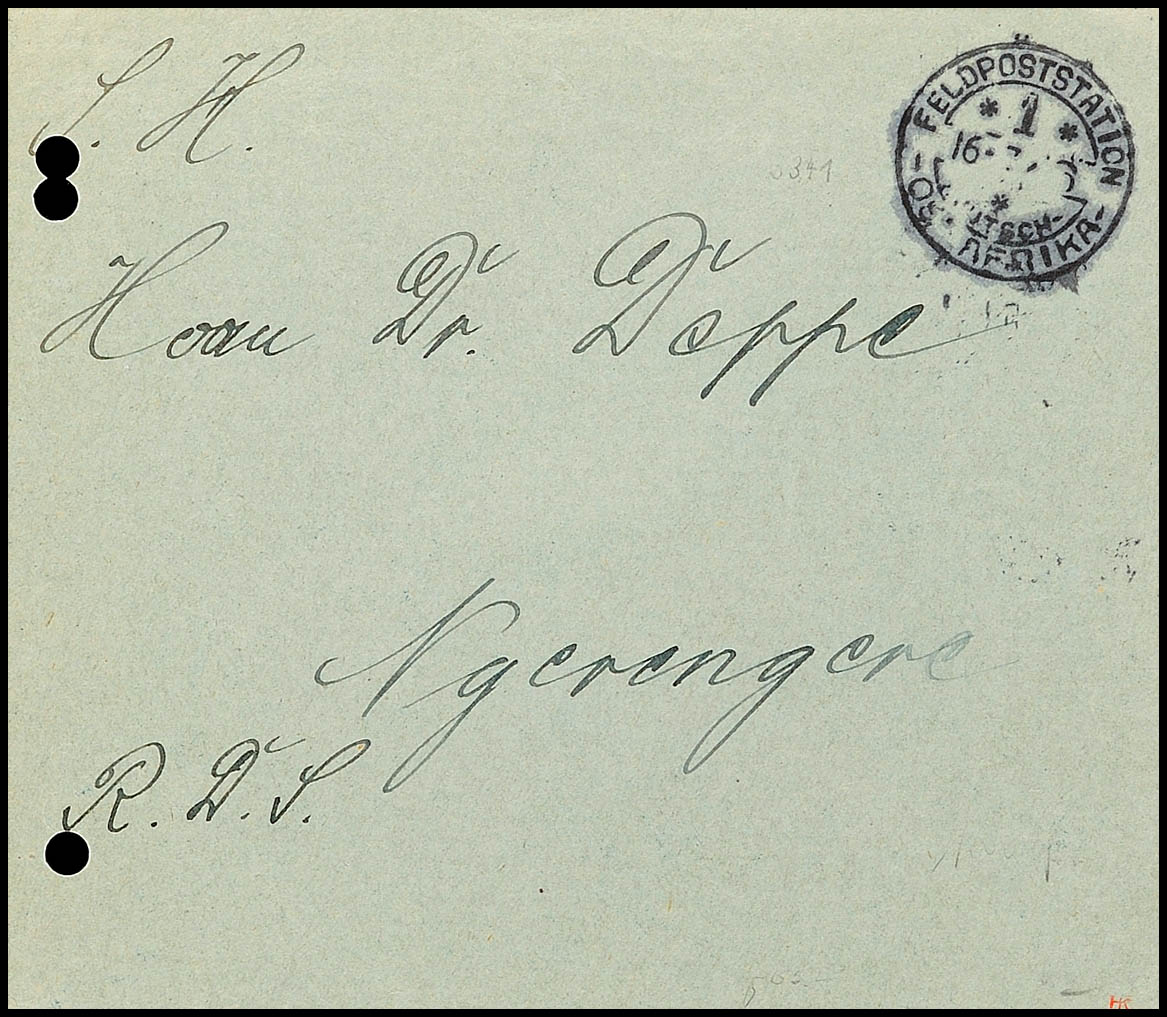 S. H.
FELDPOSTSTATION
* 1 *
16
*
TSCH-
AFRIKA
6341
Herrn Dr. Deppe
Ngerengere
R. D. S.
HK